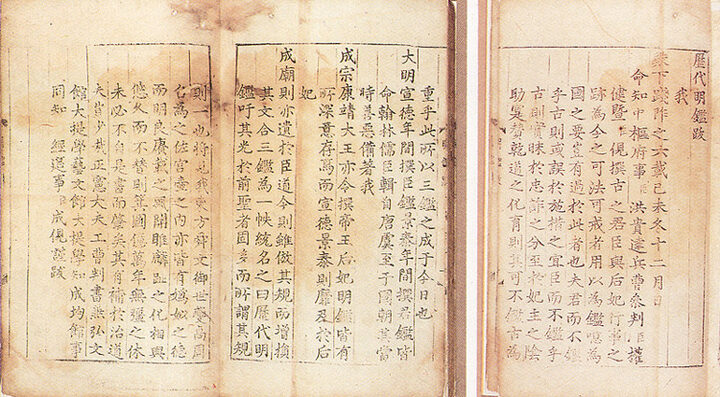 歷代明鑑跋
我
殿下踐阼之六載己未冬十二月日
命知中樞府事臣洪貴達兵曹參判臣權
健曁臣俔撰古之君臣與后妃行事之
跡為今之可法可戒者用以為鑑噫為
國之要豈有過於此者也夫君而不鑑
乎古則或誤於施措之宜臣而不鑑乎
古則實昧於忠詐之分至於妃主之陰
助奚替乾道之化育則其可不鑑古為
重乎此所以三鑑之成于今日也
大明宣德年間撰臣鑑景泰年間撰君鑑皆
命翰林儒臣輯自唐虞至于國朝其當
時善惡備著我
成宗康靖大王亦令撰帝王后妃明鑑皆有
所深意存焉而宣德景泰則靡及於后
妃
成廟則亦遺於臣道今則雖倣其規而增損
其文合三鑑為一帙統名之曰歷代明
鑑吁其光於前聖者固多而所謂其規
則一也將見我東方舜文御世夔卨周
召為之佐宮壼之內亦皆有嬀姒之德
而明良康哉之風關雎麟趾之化相與
悠久而不替則箕國億萬年無疆之休
未必不自是書而肇矣其有補於治道
夫豈少哉正憲大夫工曹判書兼弘文
館大提學藝文館大提學知成均館事
同知 經筵事臣成俔謹跋